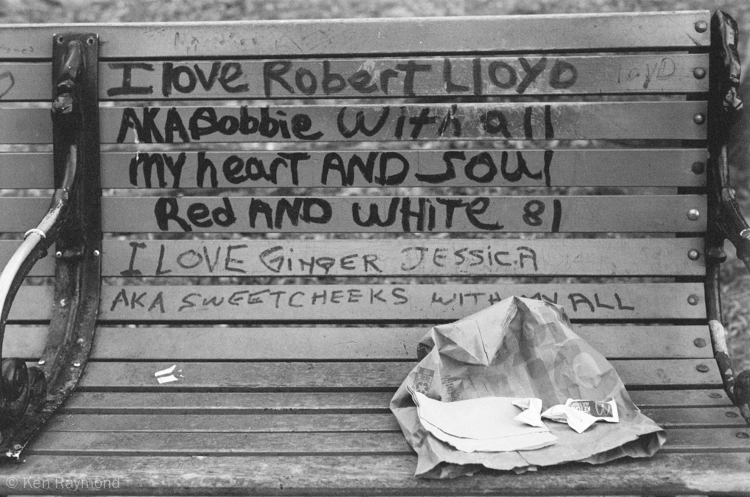 I love Robert LLOYD
AKA Bobbie With all
my heart AND soul
Red AND WHITE 81
I LOVE GINGER JESSICA
AKA SWEETCHEEKS WITH MY ALL
© Ken Raymond